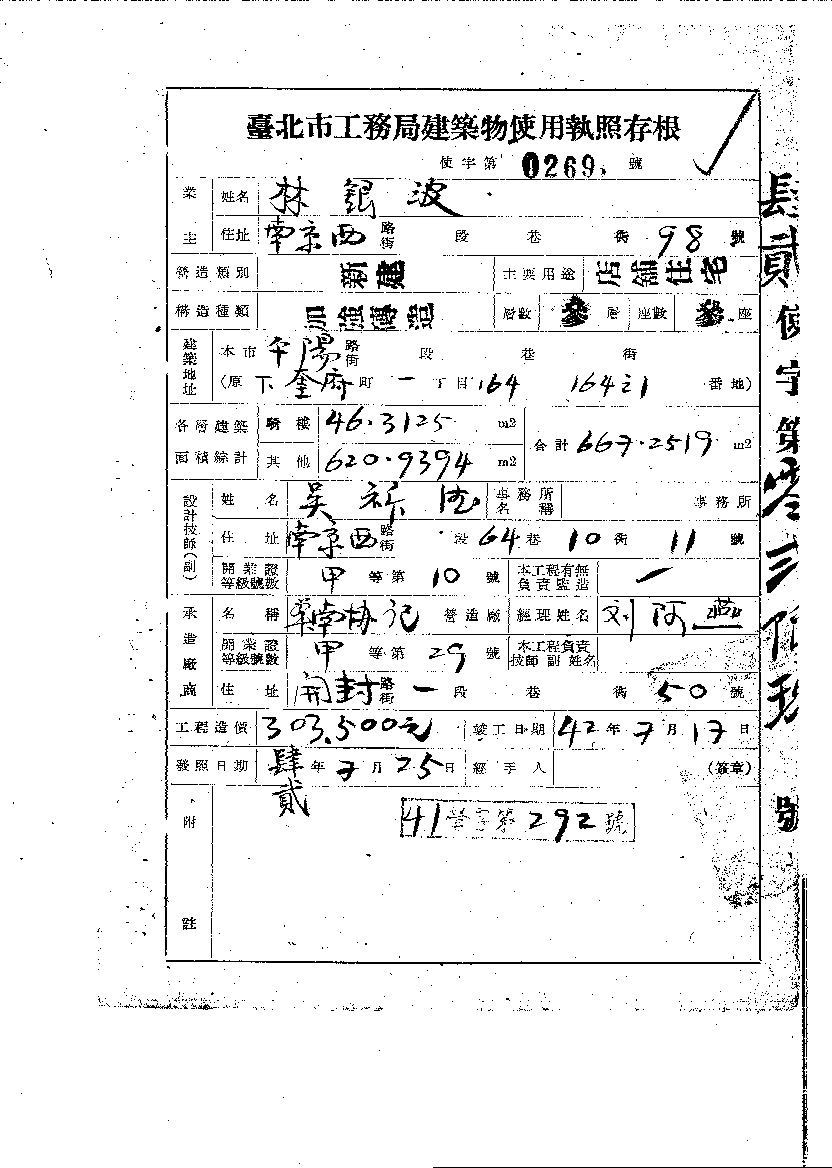 臺北市工務局建築物使用執照存根
使字第 0269 號
業主 姓名 林銀波
住址 南京西 路街 段 巷 街 98 號
營造類別 新建 主要用途 店舖住宅
構造種類 加強磚造 層數 參 層 座數 參 座
建築地址 本市 平陽 路街 段 巷 街
(原 下奎府 町 一 丁目 164 164之1 番地)
各層建築面積綜計 騎樓 46.3125 m2 合計 667.2519 m2
其他 620.9394 m2
設計技師(副) 姓名 吳 事務所名稱 事務所
住址 南京西 路街 段 64 巷 10 街 11 號
開業證等級號數 甲 等第 10 號 本工程有無負責監造 一
承造廠商 名稱 華南協記 營造廠 經理姓名 刘阿燕
開業證等級號數 甲 等第 29 號 本工程負責技師 副 姓名
住址 開封 路街 一 段 巷 街 50 號
工程造價 303,500元 竣工日期 42 年 7 月 17 日
發照日期 肆貳 年 7 月 25 日 經手人 (簽章)
附註
41 營字第 292 號
肆貳使字第零三 號